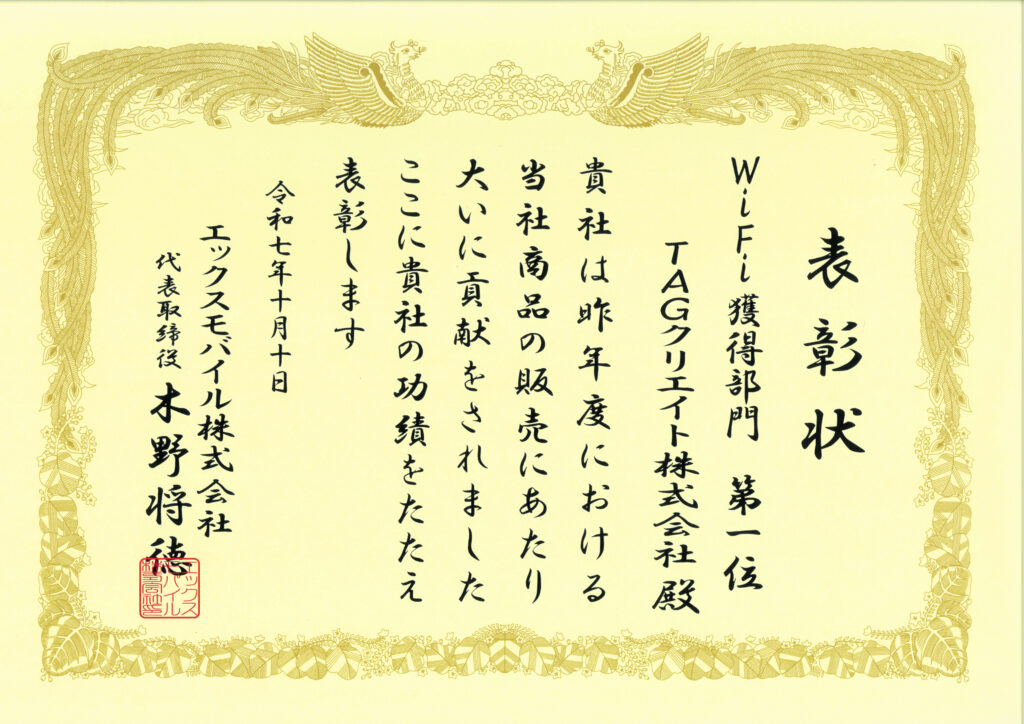 表彰状
WiFi獲得部門 第一位
TAGクリエイト株式会社 殿
貴社は昨年度における
当社商品の販売にあたり
大いに貢献をされました
ここに貴社の功績をたたえ
表彰します
令和七年十月十日
エックスモバイル株式会社
代表取締役 木野将徳